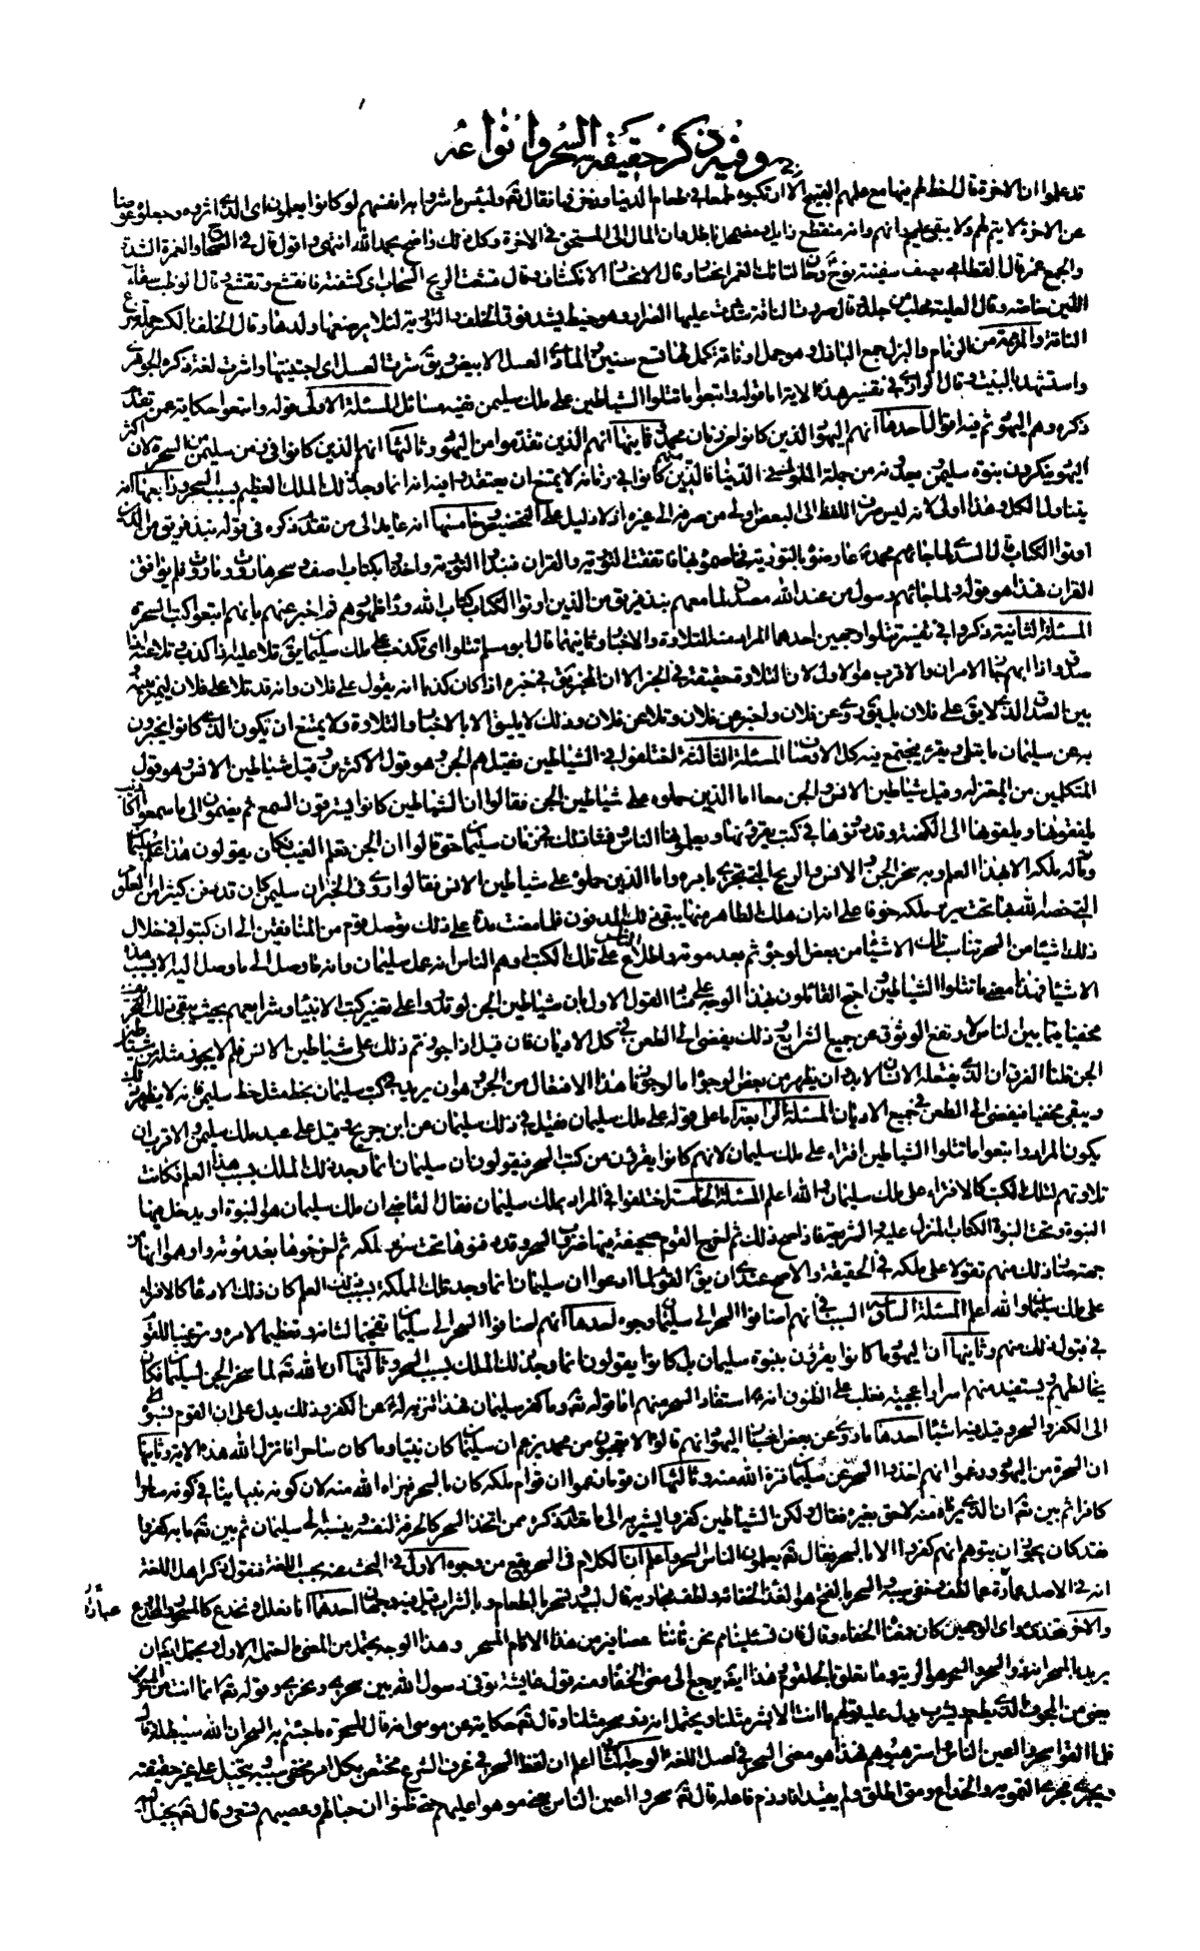 وفيه ذكر حقيقة السحر وانواعه
قد علموا ان الاخرة قال لاحظ لهم فيها مع علمهم القبيح الا ارتكبوه طمعا في طعام الدنيا وزخرفها فقال تع ولبئس ما شروا به انفسهم لو كانوا يعلمون اى الذى اثروه وجعلوه عوضا
عن الاخرة لا يتم لهم ولا يبقى عليهم وانهم وانه منقطع زايل ومضمحل باطل وان المال الى المستحق في الاخرة وكل ذلك واضح بحمد الله انتهى واقول قال في الصحاح والغمرة الشدة
والجمع غمر قال القطامى يصف سفينة نوح وحان لتالك الغمر انحسار وقال الانحسار الانكشاف وقال قشعت الريح السحاب اى كشفته فانقشع وتقشع
الناقة من الى تمام والبزل جمع البازل وهو جمل او ناقة كمل لها تسع سنين الماذى العسل الابيض ويق شرت العسل اى اجتنيتها واشرت لغة ذكره الجوهرى
واستشهد بالبيت وقال الرازى في تفسير هذه الاية اما قوله واتبعوا ما تتلوا الشياطين على ملك سليمن ففيه مسائل المسئلة الاولى قوله واتبعوا حكاية عن تقدم
ذكره وهم اليهود ثم فيه اقوال احدها انهم اليهود الذين كانوا في زمان محمد وثانيها انهم الذين تقدموا من اليهود وثالثها انهم الذين كانوا في زمن سليمن من السحرة لان اكثر
اليهود ينكرون نبوة سليمن ويعدونه من جملة الملوك في الدنيا فالذين كانوا منهم في زمانه لا يمتنع ان يعتقدوا فيه انه انما وجد ذلك الملك العظيم بسبب السحر ورابعها انه
يتناول الكل وهذا اولى لانه ليس صرف اللفظ الى البعض اولى من صرفه الى غيره اذ لا دليل على التخصيص وخامسها انه عايد الى من تقدم ذكره في قوله نبذ فريق من الذين
اوتوا الكتاب قال السدى لما جائهم محمد عارضوه بالتورية فخاصموه بها فاتفقت التورية والقران فنبذوا التورية واخذوا بكتاب اصف وسحر هاروت وماروت فلم يوافق
القران فهذا هو قوله ولما جائهم رسول من عند الله مصدق لما معهم نبذ فريق من الذين اوتوا الكتاب كتاب الله وراء ظهورهم ثم اخبر عنهم بانهم اتبعوا كتب السحرة
المسئلة الثانية ذكروا في تفسير تتلوا وجهين احدهما المراد منه التلاوة والاخبار وثانيهما قال ابو مسلم تتلوا اى تكذب على ملك سليمان يق تلا عليه اذا كذب وتلا عنه اذا
صدق واذا ابهم جاز الامران والاقرب هو الاول لان التلاوة حقيقة في الخبر الا ان المخبر يق في خبره اذا كان كذبا انه يقول على فلان وانه قد تلا على فلان ليميز بينه
بين الصدق الذى لا يق على فلان بل يق روى عن فلان واخبر عن فلان وتلا عن فلان وذلك لا يليق الا بالاخبار والتلاوة ولا يمتنع ان يكون الذى كانوا يخبرون
به عن سليمان ما يتلى ويقرء فيجتمع فيه كل الاوصاف المسئلة الثالثة اختلفوا في الشياطين فقيل هم الجن وهو قول الاكثرين وقيل شياطين الانس وهو قول
المتكلمين من المعتزلة وقيل شياطين الانس والجن معا اما الذين حملوه على شياطين الجن فقالوا ان الشياطين كانوا يسترقون السمع ثم يضمون الى ما سمعوا اكاذيب
يلفقونها ويلقونها الى الكهنة وقد دونوها في كتب يقرؤنها ويعلمونها الناس وفشا ذلك في زمان سليمان حتى قالوا ان الجن تعلم الغيب وكان يقولون هذا علم سليمان
وما تم له ملكه الا بهذا العلم وبه سخر الجن والانس والريح التى تجرى بامره واما الذين حملوه على شياطين الانس فقالوا روى في الخبر ان سليمن كان قد دفن كثيرا من العلوم
التى خصه الله بها تحت سرير ملكه خوفا على انه ان هلك الظاهر منها يبقى ذلك المدفون فلما مضت مدة على ذلك توصل قوم من المنافقين الى ان كتبوا في خلال
ذلك اشيا من السحر تناسب تلك الاشيا من بعض الوجوه ثم بعد موته واطلاع الناس على تلك الكتب اوهموا الناس انه عمل سليمان وانه ما وصل الى ما وصل اليه الا بسبب هذه
الاشيا فهذا معنى ما تتلوا الشياطين احتج القائلون بهذا الوجه على فساد القول الاول بان شياطين الجن لو قدروا على تغيير كتب الانبيا وشرايعهم بحيث يبقى ذلك التحريف
مخفيا فيما بين الناس لارتفع الوثوق عن جميع الشرايع وذلك يفضى الى الطعن في كل الاديان فان قيل اذا جوزتم ذلك على شياطين الانس فلم لا يجوز مثله من شياطين
الجن قلنا الفرق ان الذى يفتعله الانسان لا بد ان يظهر من بعض الوجوه اما لو جوزنا هذا الافتعال من الجن وهو ان يزيد في كتب سليمان بخط مثل خط سليمن فانه لا يظهر ذلك
ويبقى مخفيا فيفضى الى الطعن في جميع الاديان المسئلة الرابعة اما على قوله على ملك سليمان فقيل في ذلك سليمان عن ابن جريح وقيل على عهد ملك سليمن والاقرب ان
يكون المراد واتبعوا ما تتلوا الشياطين افتراء على ملك سليمان لانهم كانوا يقرؤن من كتب السحر فيقولون ان سليمان انما وجد ذلك الملك بسبب هذا العلم فكانت
تلاوتهم لتلك الكتب كالافتراء على ملك سليمان والله اعلم المسئلة الخامسة اختلفوا في المراد بملك سليمان فقال القاضى ان ملك سليمان هو النبوة او يدخل فيها
النبوة وتحت النبوة الكتاب المنزل عليه والشريعة فاذا صح ذلك ثم اخرج القوم صحيفة فيها ضروب السحر وقد دفنوها تحت سرير ملكه ثم اخرجوها بعد موته واوهموا انها من
جهته صار ذلك منهم تقولا على ملكه في الحقيقة والاصح عندى ان يق القوم لما ادعوا ان سليمان انما وجد تلك المملكة بسبب ذلك العلم كان ذلك الادعا كالافتراء
على ملك سليمان والله اعلم المسئلة السادسة السبب في انهم اضافوا السحر الى سليمان وجوه احدها انهم اضافوا السحر الى سليمان تفخيما لشانه وتعظيما لامره وترغيبا للقوم
في قبول ذلك منهم وثانيها ان اليهود ما كانوا يقرون بنبوة سليمان بل كانوا يقولون انما وجد ذلك الملك بسبب السحر وثالثها ان الله تع لما سخر الجن لسليمان فكان
يخالطهم ويستفيد منهم اسرارا عجيبة فغلب على الظنون انه استفاد السحر منهم اما قوله تع وما كفر سليمان فهذا تنزيه له عن الكفر وذلك يدل على ان القوم نسبوه
الى الكفر والسحر وقيل فيه اشيا احدها ما روى عن بعض احبار اليهود انهم قالوا الا تعجبون من محمد يزعم ان سليمان كان نبيا وما كان ساحرا فانزل الله هذه الاية وثانيها
ان السحرة من اليهود زعموا انهم اخذوا السحر عن سليمان فنزه الله منه وثالثها ان قوما زعموا ان قوام ملكه كان بالسحر فبراه الله منه لان كونه نبيا ينافى كونه ساحرا
كافرا ثم بين تع ان الذى براه منه لاحق بغيره فقال ولكن الشياطين كفروا يشير به الى ما تقدم ذكره ممن اتخذ السحر كالحرفة لنفسه وينسبه الى سليمان ثم بين تع ما به كفروا
فقد كان يجوز ان يتوهم انهم كفروا الا بالسحر فقال تع يعلمون الناس السحر واعلم ان الكلام في السحر يقع من وجوه الاول في البحث عنه بحسب اللغة فنقول ذكر اهل اللغة
انه في الاصل عبارة عما لطف وخفى سببه والسحر بالفتح هو الغذا لخفائه ولطف مجاريه قال لبيد ونسحر بالطعام وبالشراب قيل فيه وجهان احدهما انا نعلل ونخدع كالمسحور المخدوع
والاخر نغذى واى الوجهين كان فمعناه الخفاء وقال فان تسئلينا فيم نحن فاننا عصافير من هذا الانام المسحر وهذا الوجه يحتمل من المعنى ما احتمله الاول ويحتمل ايضا ان
يريد بالمسحر انه ذو السحر والسحر هو الرية وما تعلق بالحلقوم وهذا ايضا يرجع الى معنى الخفاء ومنه قول عايشة توفى رسول الله بين سحرى ونحرى وقوله تع انما انت من المسحرين
يعنى من المجوف الذى يطعم ويشرب يدل عليه قولهم ما انت الا بشر مثلنا ويحتمل انه ذو سحر مثلنا وقال تع حكاية عن موسى انه قال للسحرة ما جئتم به السحر ان الله سيبطله وقال
فلما القوا سحروا اعين الناس واسترهبوهم فهذا هو معنى السحر في اصل اللغة الوجه الثانى اعلم ان لفظ السحر في عرف الشرع مختص بكل امر مخفى سببه ويتخيل على غير حقيقته
ويجرى مجرى التمويه والخداع ومتى اطلق ولم يقيد افاد ذم فاعله قال تع سحروا اعين الناس يعنى موهوا عليهم حتى ظنوا ان حبالهم وعصيهم تسعى وقال تع يخيل اليه